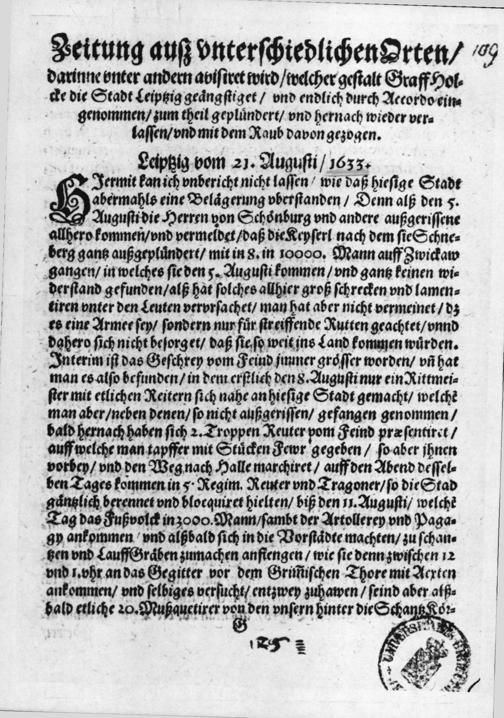 Zeitung auß vnterschiedlichen Orten/
109
darinne vnter andern avisiret wird/welcher gestalt Graff Hol-
cke die Stadt Leipzig geängstiget/ vnd endlich durch Accordo ein-
genommen/zum theil geplündert/ vnd hernach wieder ver-
lassen/vnd mit dem Raub davon gezogen.
Leiptzig vom 21. Augusti/1633.
HIermit kan ich vnbericht nicht lassen/ wie daß hiesige Stadt
abermahls eine Belägerung vberstanden/ Denn alß den 5.
Augusti die Herren von Schönburg vnd andere außgerissene
allhero kommen/vnd vermeldet/daß die Keyserl nach dem sie Schne-
berg gantz außgeplündert/ mit in 8. in 10000. Mann auff Zwickaw
gangen/ in welches sie den 5. Augusti kommen/vnd gantz keinen wi-
derstand gefunden/alß hat solches allhier groß schrecken vnd lamen-
tiren vnter den Leuten vervrsachet/ man hat aber nicht vermeinet/ dz
es eine Armee sey/ sondern nur für streiffende Rutten geachtet/vnnd
dahero sich nicht besorget/ daß sie, so weit ins Land kommen würden.
Interim ist das Geschrey vom Feind immer grösser worden/ vñ hat
man es also befunden/ in dem erstlich den 8. Augusti nur ein Rittmei-
ster mit etlichen Reitern sich nahe an hiesige Stadt gemacht/ welchē
man aber/neben denen/ so nicht außgerissen/ gefangen genommen/
bald hernach haben sich 2. Troppen Reuter vom Feind præsentiret/
auff welche man tapffer mit Stücken Fewr gegeben/ so aber ihnen
vorbey/ vnd den Weg nach Halle marchiret/ auff den Abend dessel-
ben Tages kommen in 5. Regim. Reuter vnd Tragoner/ so die Stad
gäntzlich berennet vnd blocquiret hielten/ biß den 11. Augusti/ welchē
Tag das Fußvolck in 3000. Mann/sambt der Artollerey vnd Paga-
gy ankommen/ vnd alßbald sich in die Vorstädte machten/ zu schan-
tzen vnd Lauff Gräben zumachen anfiengen/ wie sie denn zwischen 12
vnd 1. vhr an das Gegitter vor dem Grim̄ischen Thore mit Aexten
ankommen/ vnd selbiges versucht/ entzwey zuhawen/ seind aber alß-
bald etliche 20. Mußquetirer von den vnsern hinter die Schantz Kör-
G